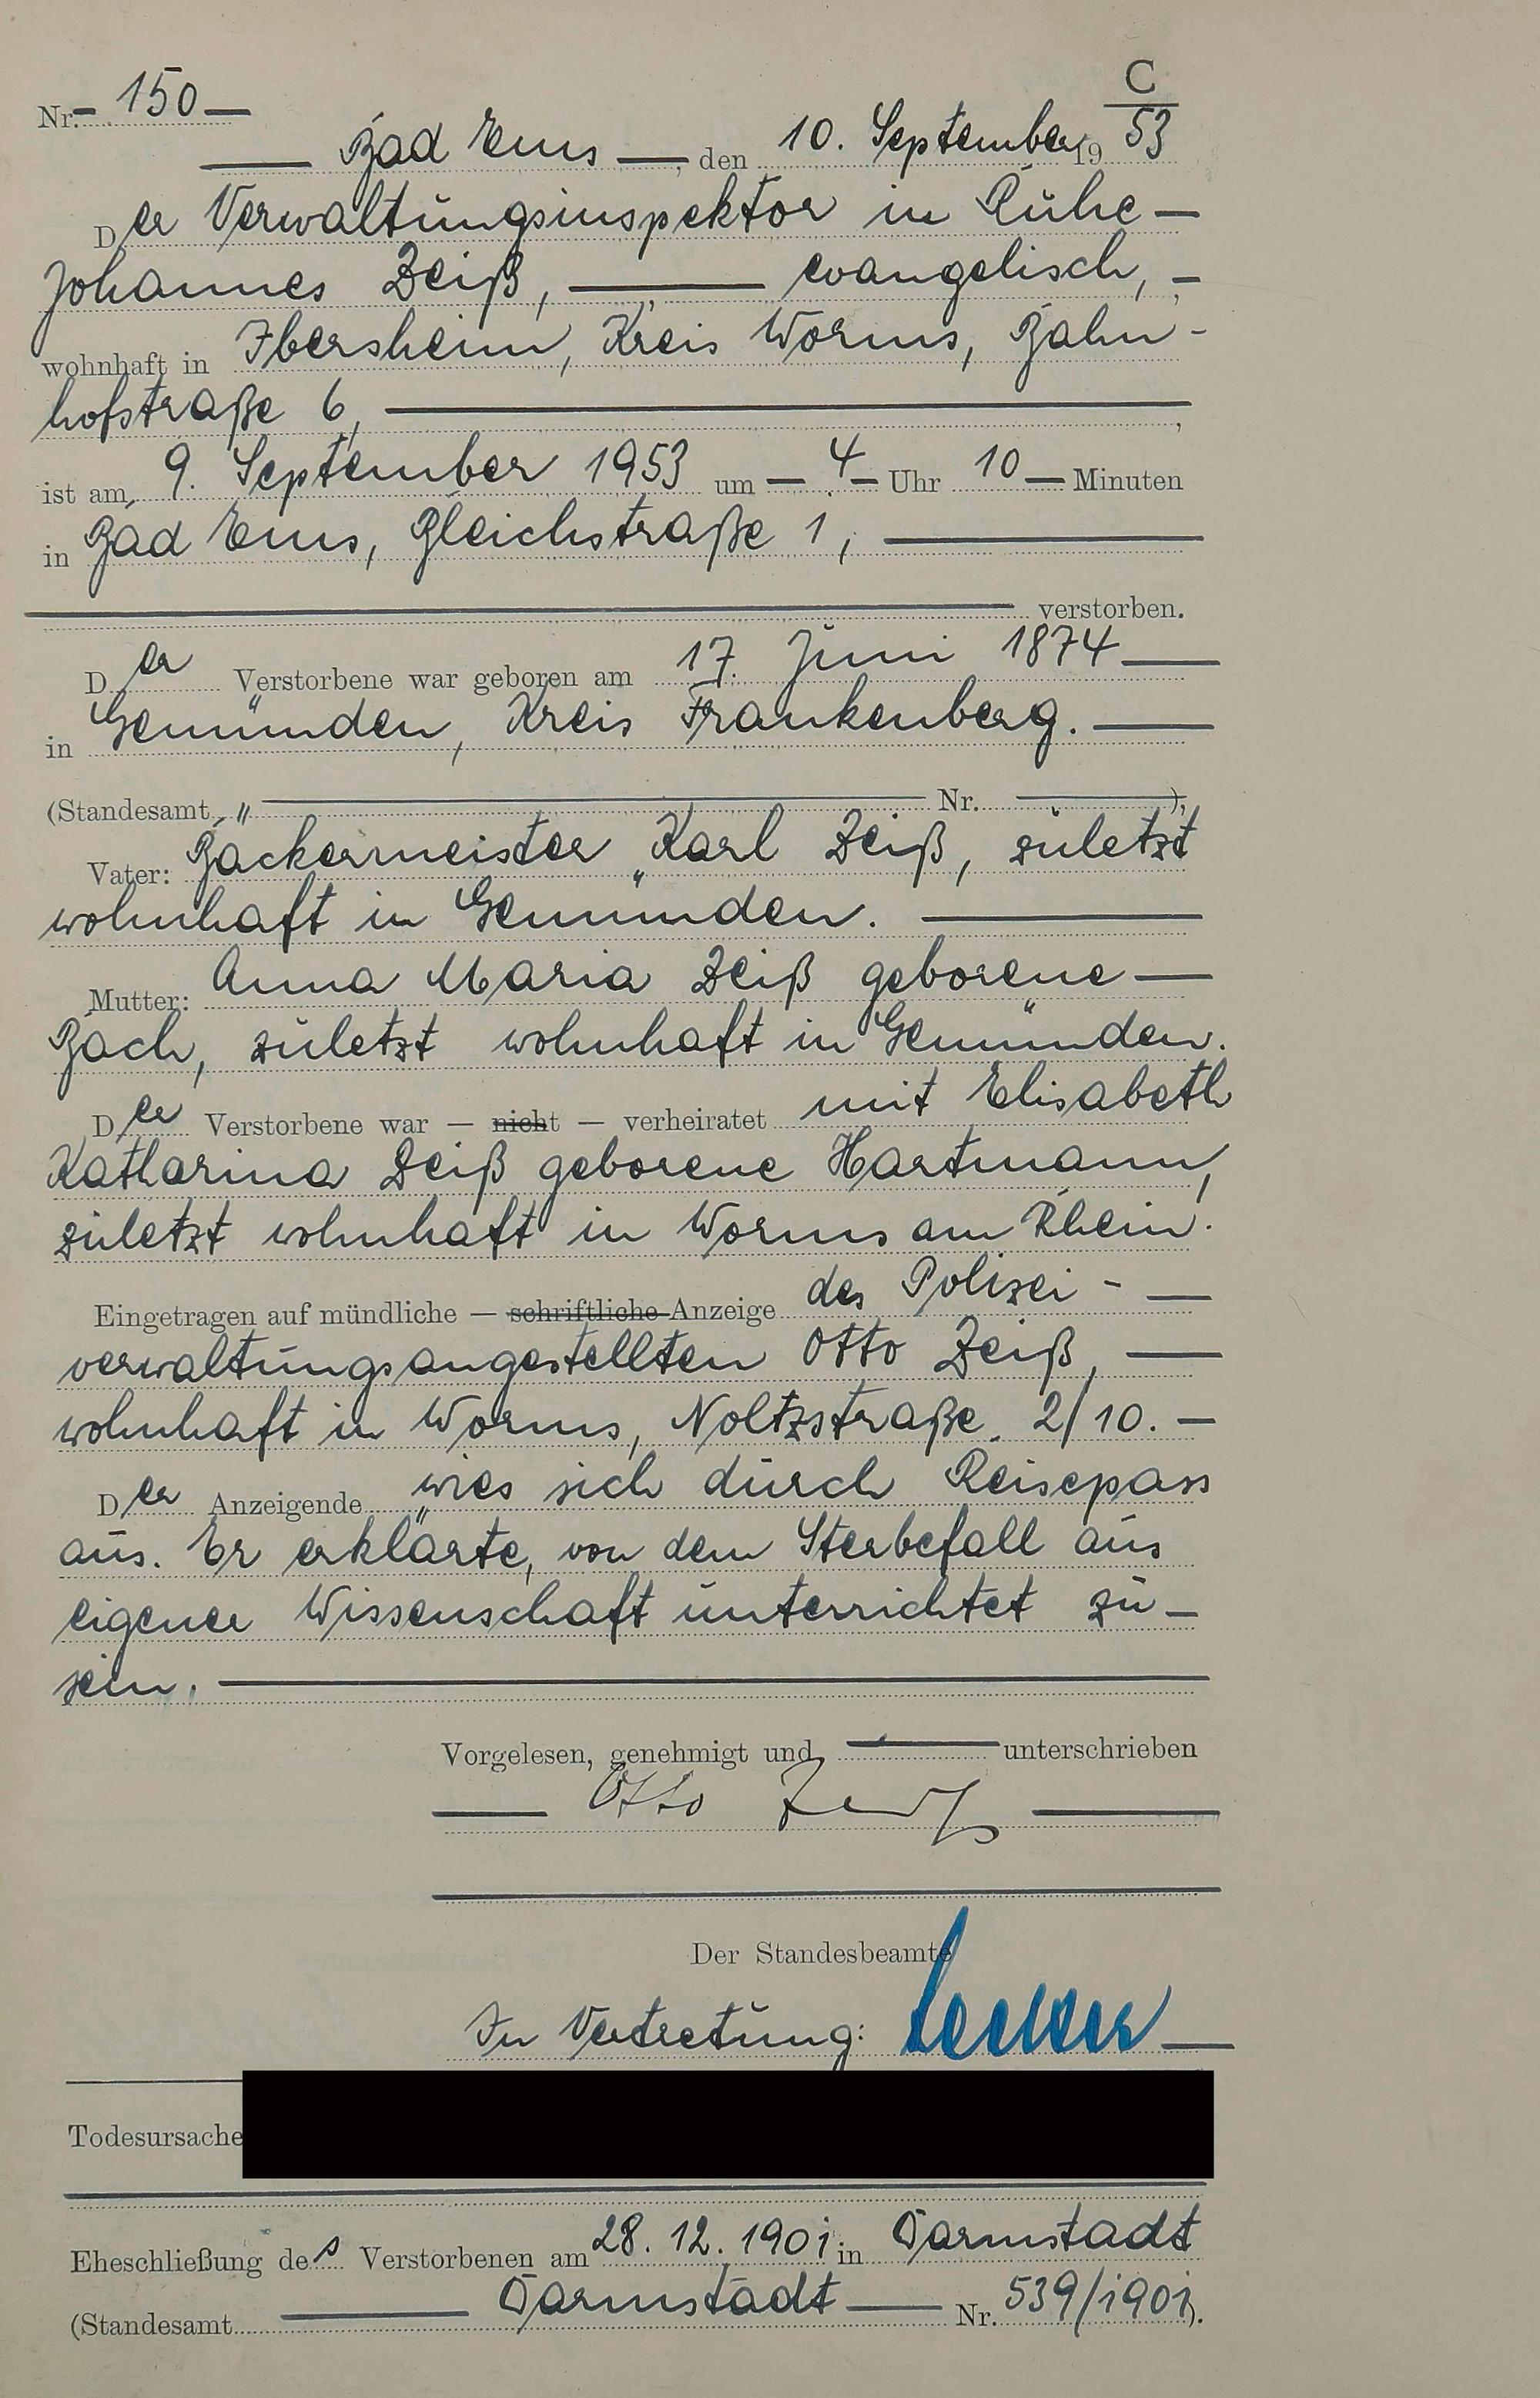 C
Nr. 150
Bad Ems, den 10. September 1953
Der Verwaltungsinspektor in Ruhe
Johannes Zeiß, evangelisch,
wohnhaft in Ibersheim, Kreis Worms, Bahn-
hofstraße 6,
ist am 9. September 1953 um 4 Uhr 10 Minuten
in Bad Ems, Bleichstraße 1,
verstorben.
Der Verstorbene war geboren am 17. Juni 1874
in Gemünden, Kreis Frankenberg.
(Standesamt Nr. ),
Vater: Bäckermeister Karl Zeiß, zuletzt
wohnhaft in Gemünden.
Mutter: Anna Maria Zeiß geborene
Bach, zuletzt wohnhaft in Gemünden.
Der Verstorbene war — nicht — verheiratet mit Elisabeth
Katharina Zeiß geborene Hartmann,
zuletzt wohnhaft in Worms am Rhein.
Eingetragen auf mündliche — schriftliche Anzeige des Polizei-
verwaltungsangestellten Otto Zeiß,
wohnhaft in Worms, Noltzstraße 2/10.
Der Anzeigende wies sich durch Reisepass
aus. Er erklärte, von dem Sterbefall aus
eigener Wissenschaft unterrichtet zu
sein.
Vorgelesen, genehmigt und unterschrieben
Otto Zeiß
Der Standesbeamte
In Vertretung:
Todesursache
Eheschließung des Verstorbenen am 28. 12. 1901 in Darmstadt
(Standesamt Darmstadt Nr. 539/1901).